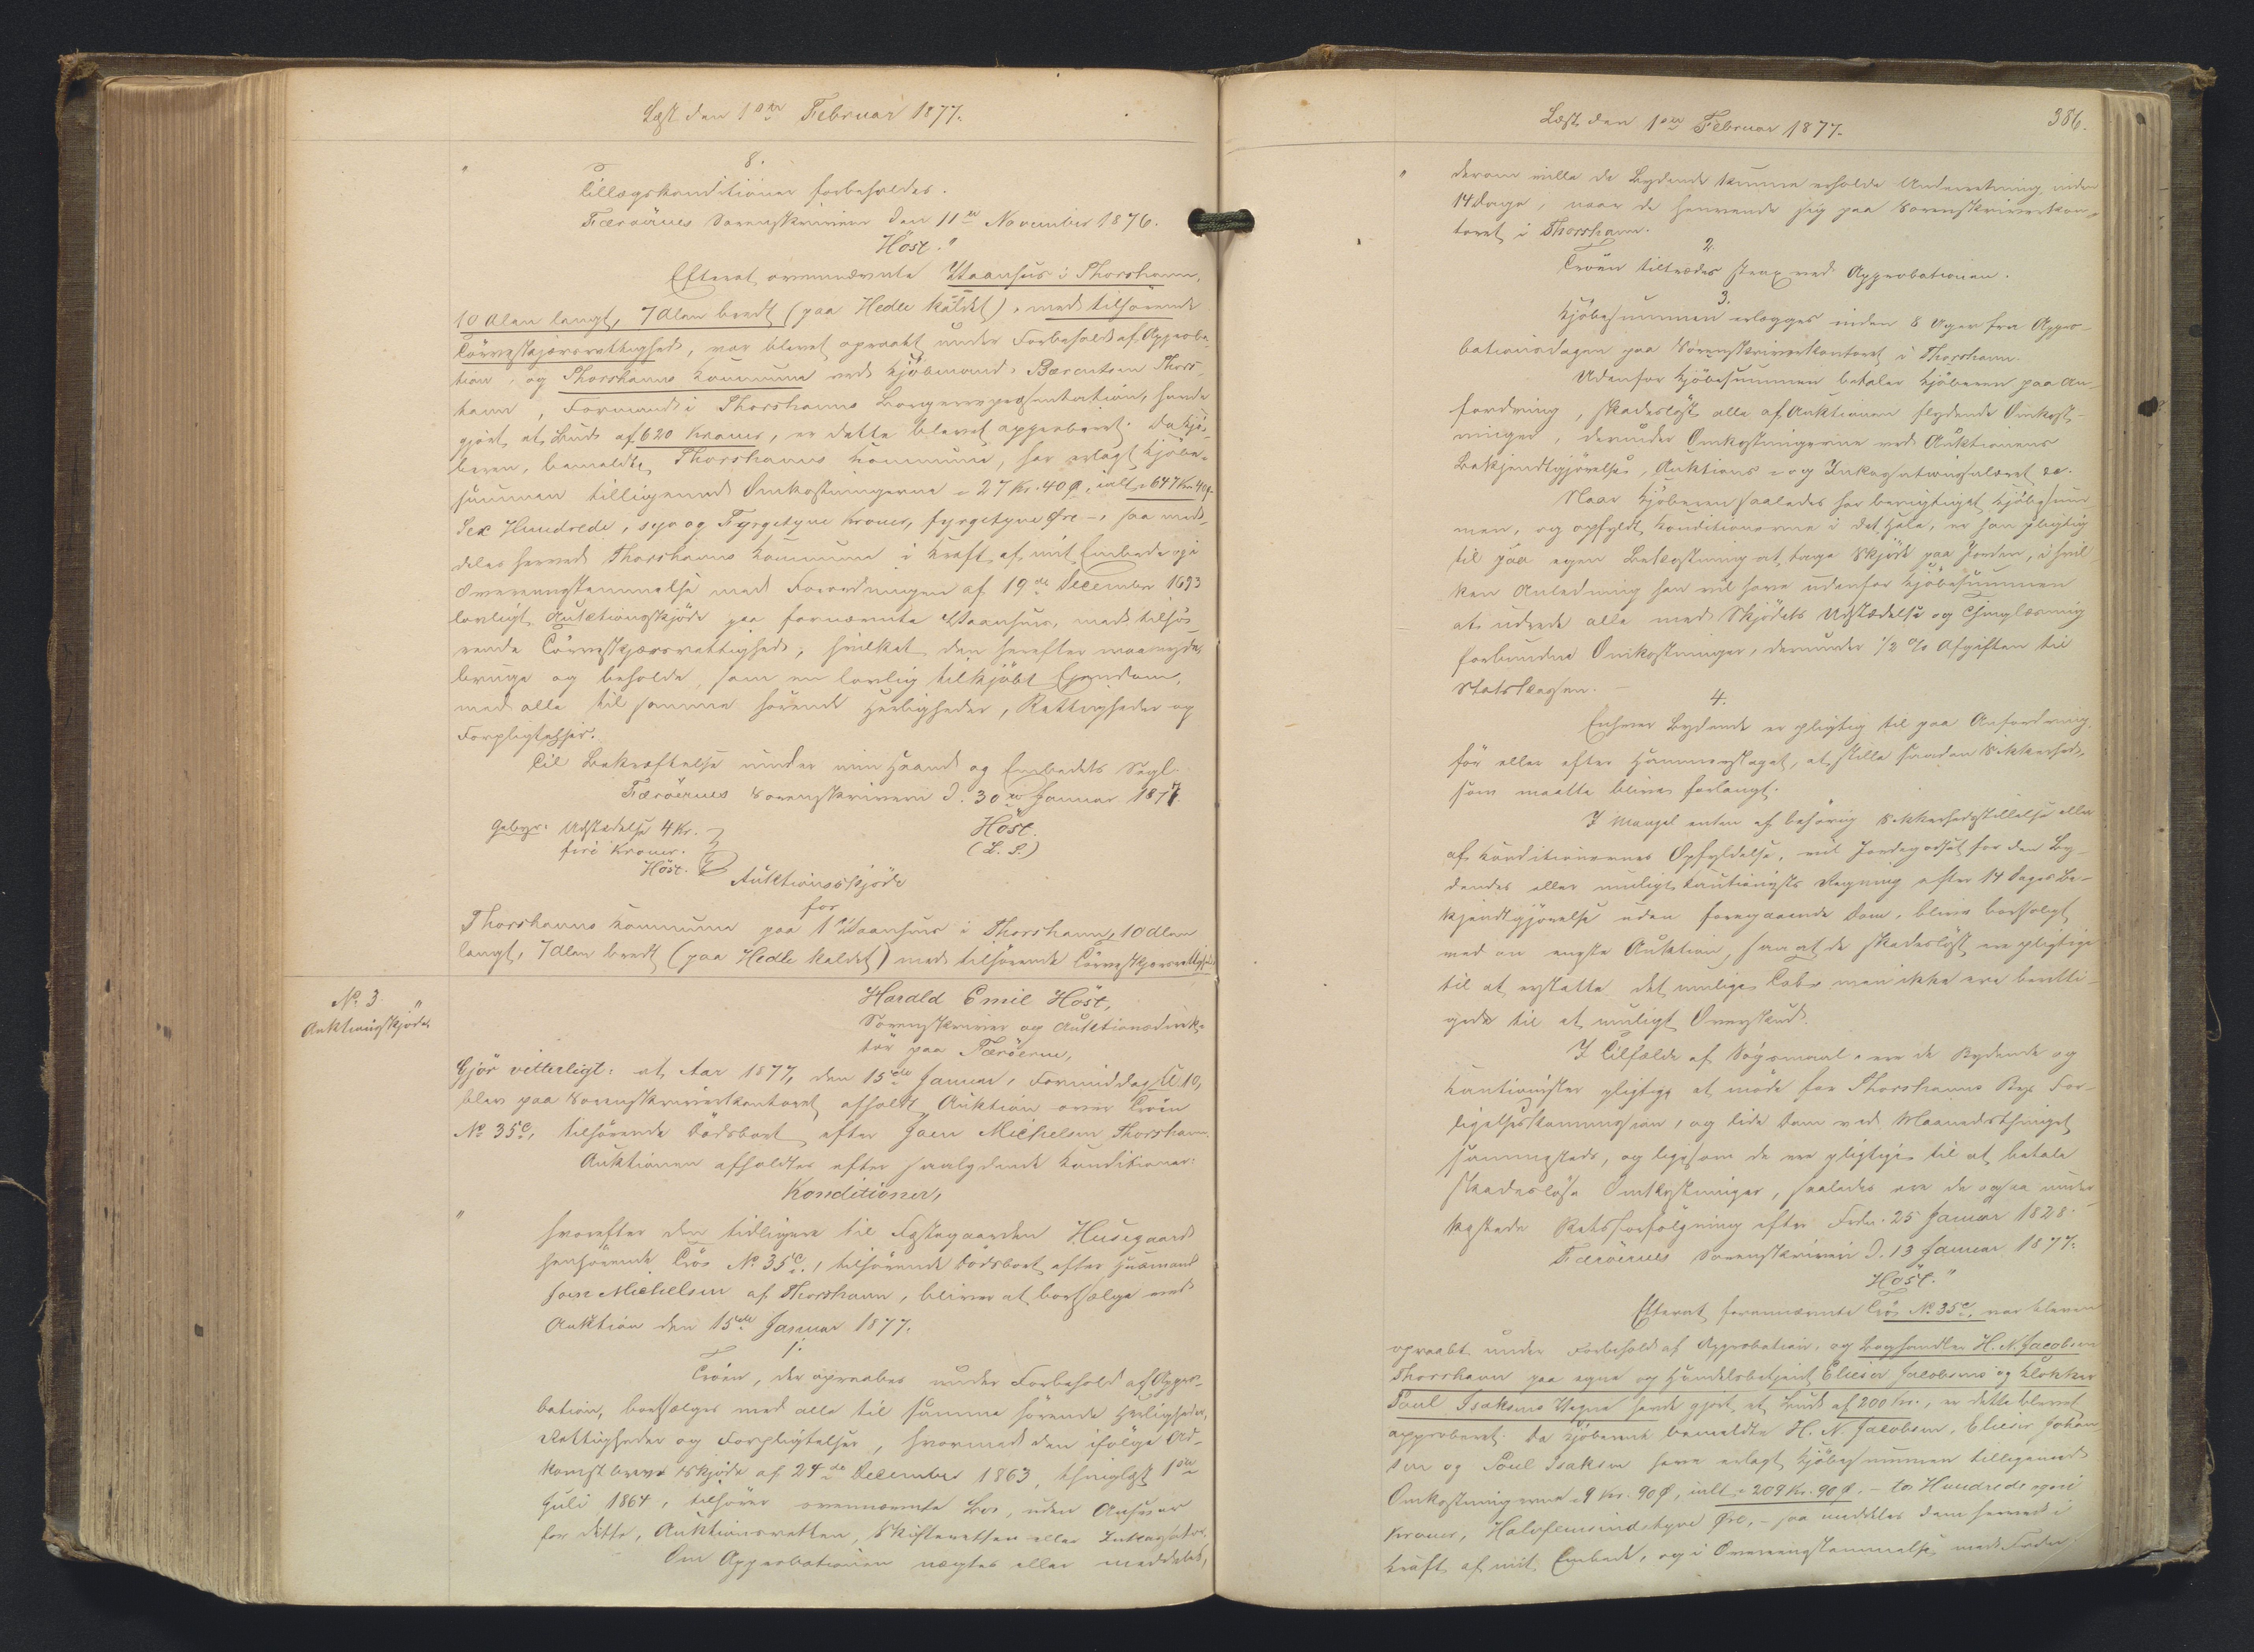 Læst den 1ste Februar 1877.
8.
" Tillægskonditioner forbeholdes.
Færøernes Sorenskriveri den 11te November 1876.
Höst."
Efterat ovennævnte Vaanhus i Thorshavn,
10 Alen langt, 7 Alen bredt (paa Hedle kaldet), med tilhörende
Törveskjærsrettighed, var blevet opraabt under Forbehold af Approba-
tion, og Thorshavns Kommune ved Kjöbmand Bærentsen Thors-
havn, Formand i Thorshavns Borgerrepræsentation, havde
gjort et Bud af 620 Kroner, er dette blevet approberet. Da Kjö-
beren, bemeldte Thorshavns Kommune, har erlagt Kjöbe-
summen tilligemed Omkostningerne 27 Kr. 40 Ø, ialt 647 Kr. 40 Ø.
Sex Hundrede, syv og Fyrgetyve Kroner, fyrgetyve Øre -, saa med-
deles herved Thorshavns Kommune i Kraft af mit Embede og i
Overeensstemmelse med Forordningen af 19de December 1693
lovligt Auktionsskjöde paa fornævnte Vaanhuus, med tilhö-
rende Törveskjærsrettighed, hvilket den herefter maa nyde,
bruge og beholde, som en lovlig tilkjöbt Ejendom,
med alle til samme hörende Herligheder, Rettigheder og
Forpligtelser.
Til Bekræftelse under min Haand og Embedets Segl.
Færöernes Sorenskriveri d. 30te Januar 1877.
Gebyr: Udstedelse 4 Kr. Höst.
fire Kroner. (L. S.)
Höst.
Auktionsskjöde
for
Thorshavns Kommune paa 1 Vaanhuus i Thorshavn, 10 Alen
langt, 7 Alen bredt (paa Hedle kaldet) med tilhörende Törveskjærsrettighed
No 3.
Auktionsskjöde
Harald Emil Höst,
Sorenskriver og Auktionsdirek-
tör paa Færöerne,
Gjör vitterligt: at Aar 1877, den 15de Januar, Formiddag Kl 10,
blev paa Sorenskriverkontoret afholdt Auktion over Tröen
No 35c, tilhörende Dödsboet efter Joen Michelsen Thorshavn.
Auktionen afholdtes efter saalydende Konditioner:
Konditioner,
" hvorefter den tidligere til Fæstegaarden Husegaard
henhörende Trö No 35c, tilhörende Dödsboet efter Huusmand
Joen Michelsen af Thorshavn, bliver at bortsælge ved
Auktion den 15de Januar 1877.
1.
Tröen, der opraabes under Forbehold af Appro-
bation, bortsælges med alle til samme hörende Herligheder,
Rettigheder og Forpligtelser, hvormed den ifölge Ad-
komstbrevet Skjöde af 24de December 1863, thinglæst 1ste
Juli 1864, tilhörer ovennævnte Bo, uden Ansvar
for dette, Auktionsretten, Skifteretten eller Inkassator.
Om Approbationen nægtes eller meddeles,
Læst den 1ste Februar 1877.
386.
" derom ville de Bydende kunne erholde Underretning inden
14 Dage, naar de henvende sig paa Sorenskriverkon-
toret i Thorshavn.
2.
Tröen tiltrædes strax ved Approbationen.
3.
Kjöbesummen erlægges inden 8 Uger fra Appro-
bationsdagen paa Sorenskriverkontoret i Thorshavn.
Udenfor Kjöbesummen betaler Kjöberen paa An-
fordring, skadeslöst alle af Auktionen flydende Omkost-
ninger, derunder Omkostningerne ved Auktionens
Bekjendtgjörelse, Auktions- og Inkassationssalæret &c.
Naar Kjöberen saaledes har berigtiget Kjöbesum-
men, og opfyldt Konditionerne i det Hele, er han pligtig
til paa egen Bekostning at tage Skjöde paa Jorden, i hvil-
ken Anledning han vil have udenfor Kjöbesummen
at udrede alle med Skjödets Udstædelse og Thinglæsning
forbundne Omkostninger, derunder 1/2 % Afgiften til
Statskassen. -
4.
Enhver Bydende er pligtig til paa Anfordring
för eller efter Hammerslaget, at stille saadan Sikkerhed,
som maatte blive forlangt.
I Mangel enten af behörig Sikkerhedsstillelse eller
af Konditionernes Opfyldelse, vil Jordegodset for den By-
dendes eller muligt Kautionists Regning efter 14 Dages Be-
kjendtgjörelse uden foregaaende Dom, blive bortsolgt
ved en eneste Auktion, saa at de skadeslöst ere pligtige
til at erstatte det mulige Tab, men ikke ere beretti-
gede til et muligt Overskud.
I Tilfælde af Sögsmaal ere de Bydende og
Kautionister pligtige at möde for Thorshavns Byes For-
ligelseskommission, og lide Dom ved Maanedsthinget
sammesteds, og ligesom de ere pligtige til at betale
skadeslöse Omkostninger, saaledes ere de ogsaa under-
kastede Retsforfölgning efter Frdn. 25 Januar 1828.
Færöernes Sorenskriveri d. 13 Januar 1877.
Höst."
Efterat fornævnte Trö No 35c, var bleven
opraabt under Forbehold af Approbation, og Boghandler H. N. Jacobsen
Thorshavn paa egne og Handelsbetjent Elieser Jacobsens og Klokker
Poul Isaksens Vegne havde gjort et Bud af 200 Kr., er dette blevet
approberet. Da Kjöberne bemeldte H. N. Jacobsen, Elieser Johan-
sen og Poul Isaksen have erlagt Kjöbesummen tilligemed
Omkostningerne 9 Kr. 90 Ø, ialt 209 Kr. 90 Ø. - to Hundrede og ni
Kroner, Halvfemsindstyve Øre, - saa meddeles dem herved i
Kraft af mit Embede, og i Overeensstemmelse med Frdn.